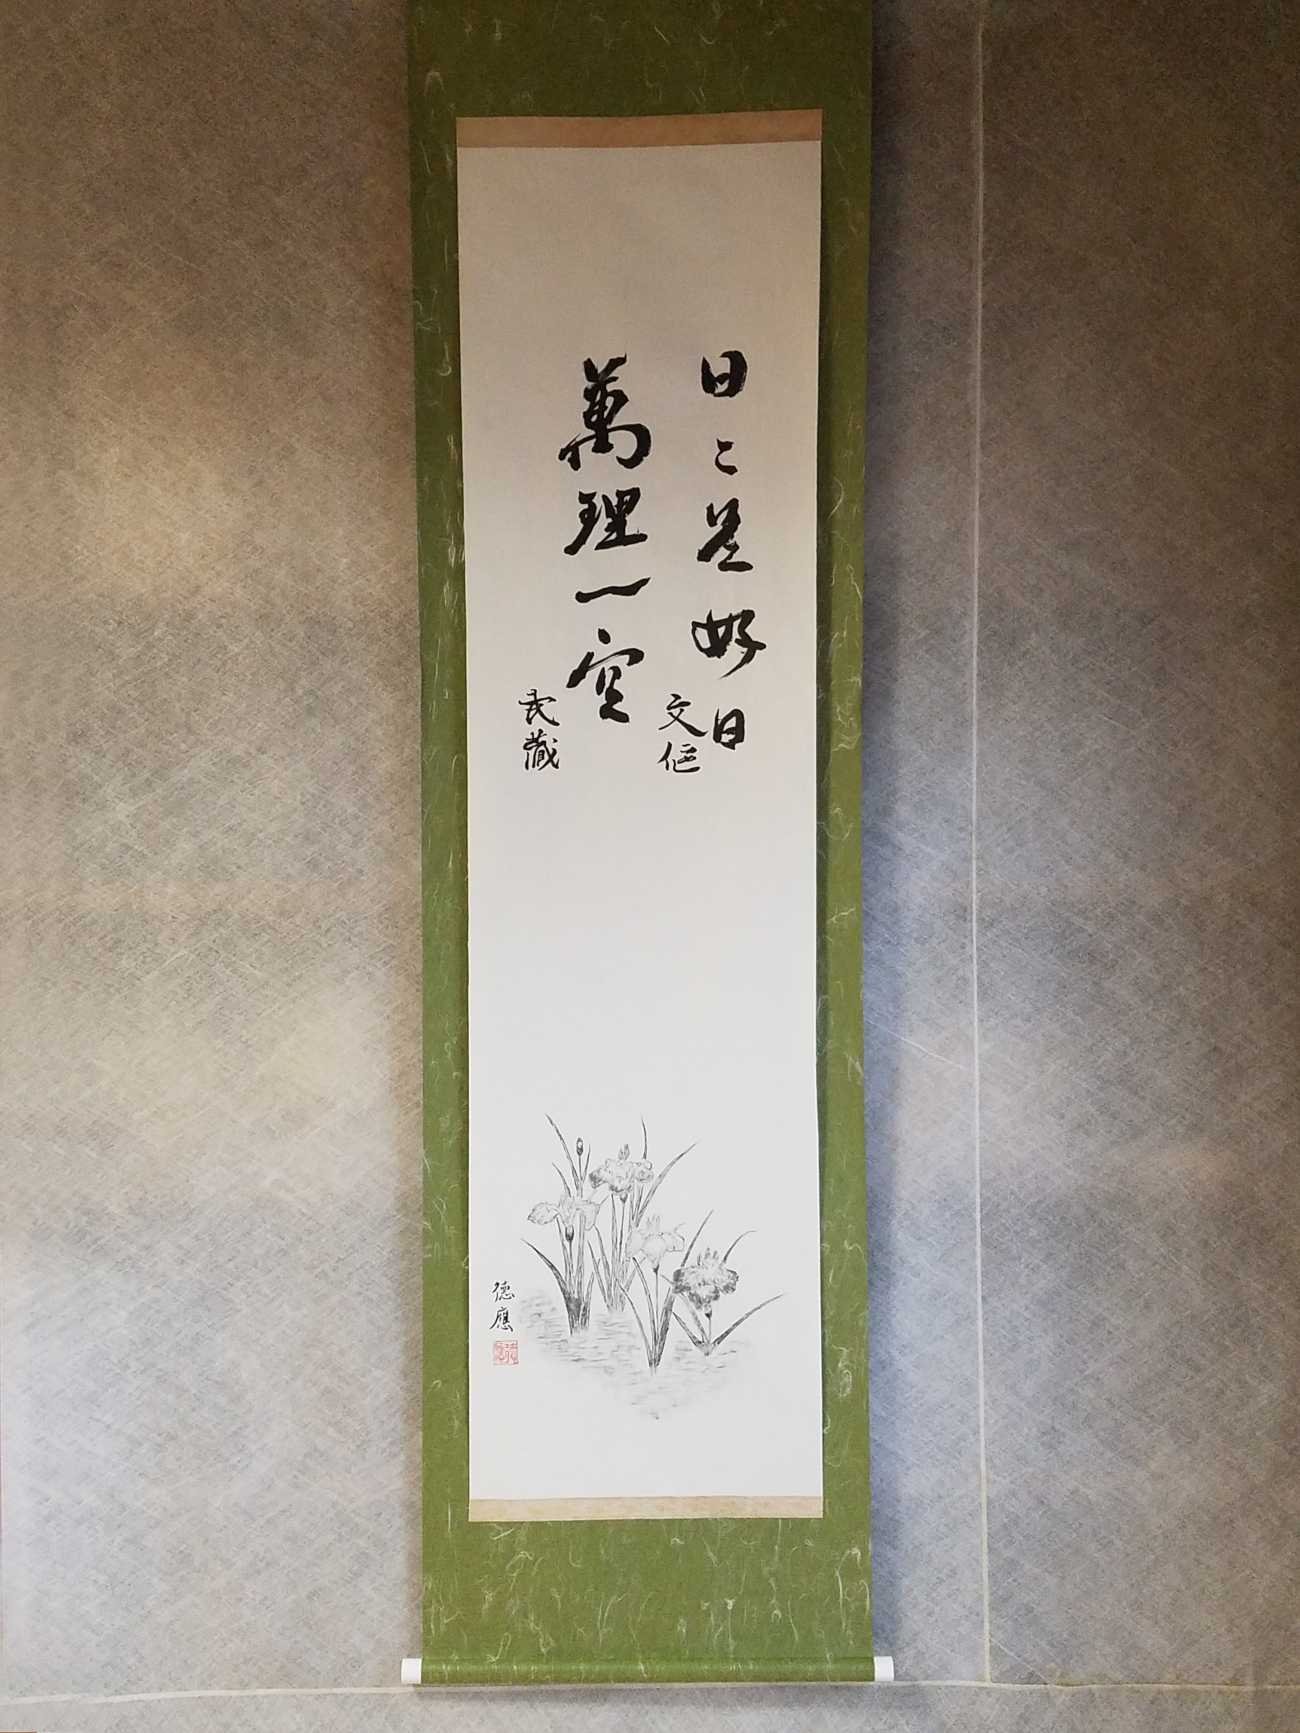 日々是好日
文偃
萬理一空
武蔵
德應